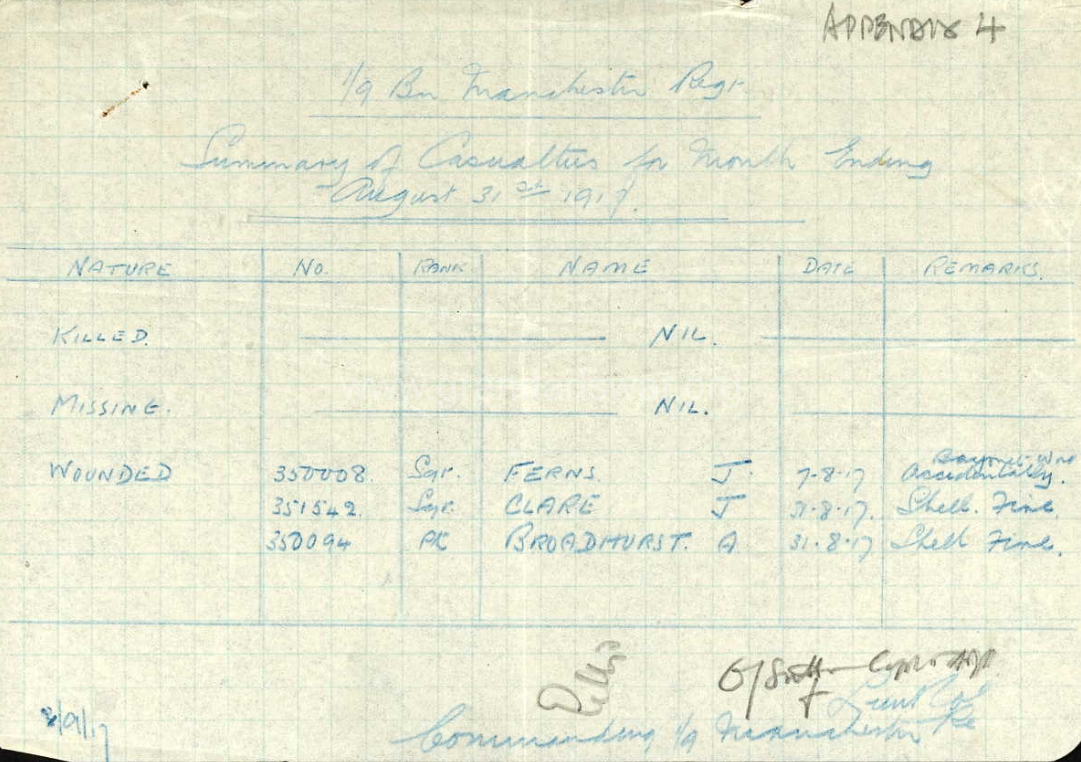 APPENDIX 4
1/9 Bn Manchester Regt.
Summary of Casualties for Month Ending
August 31st 1917.
NATURE No. RANK NAME DATE REMARKS.
KILLED. NIL.
MISSING. NIL.
WOUNDED 350008. Sgt. FERNS. J. 7-8-17 Bayonet Accidentally.
351542. Sgt. CLARE J 31-8-17. Shell Fire.
350094 Pte BROADHURST. A 31.8.17 Shell Fire.
Capt & Adjt.
f Lieut Col
Commanding 1/9 Manchester Re
/9/17